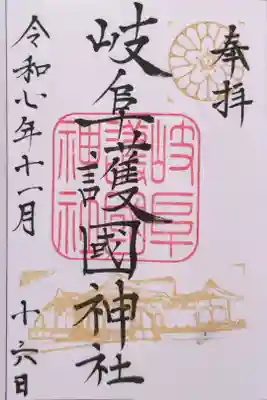 奉拝
岐阜護國神社
岐阜
護國
神社
令和元年十一月
六日